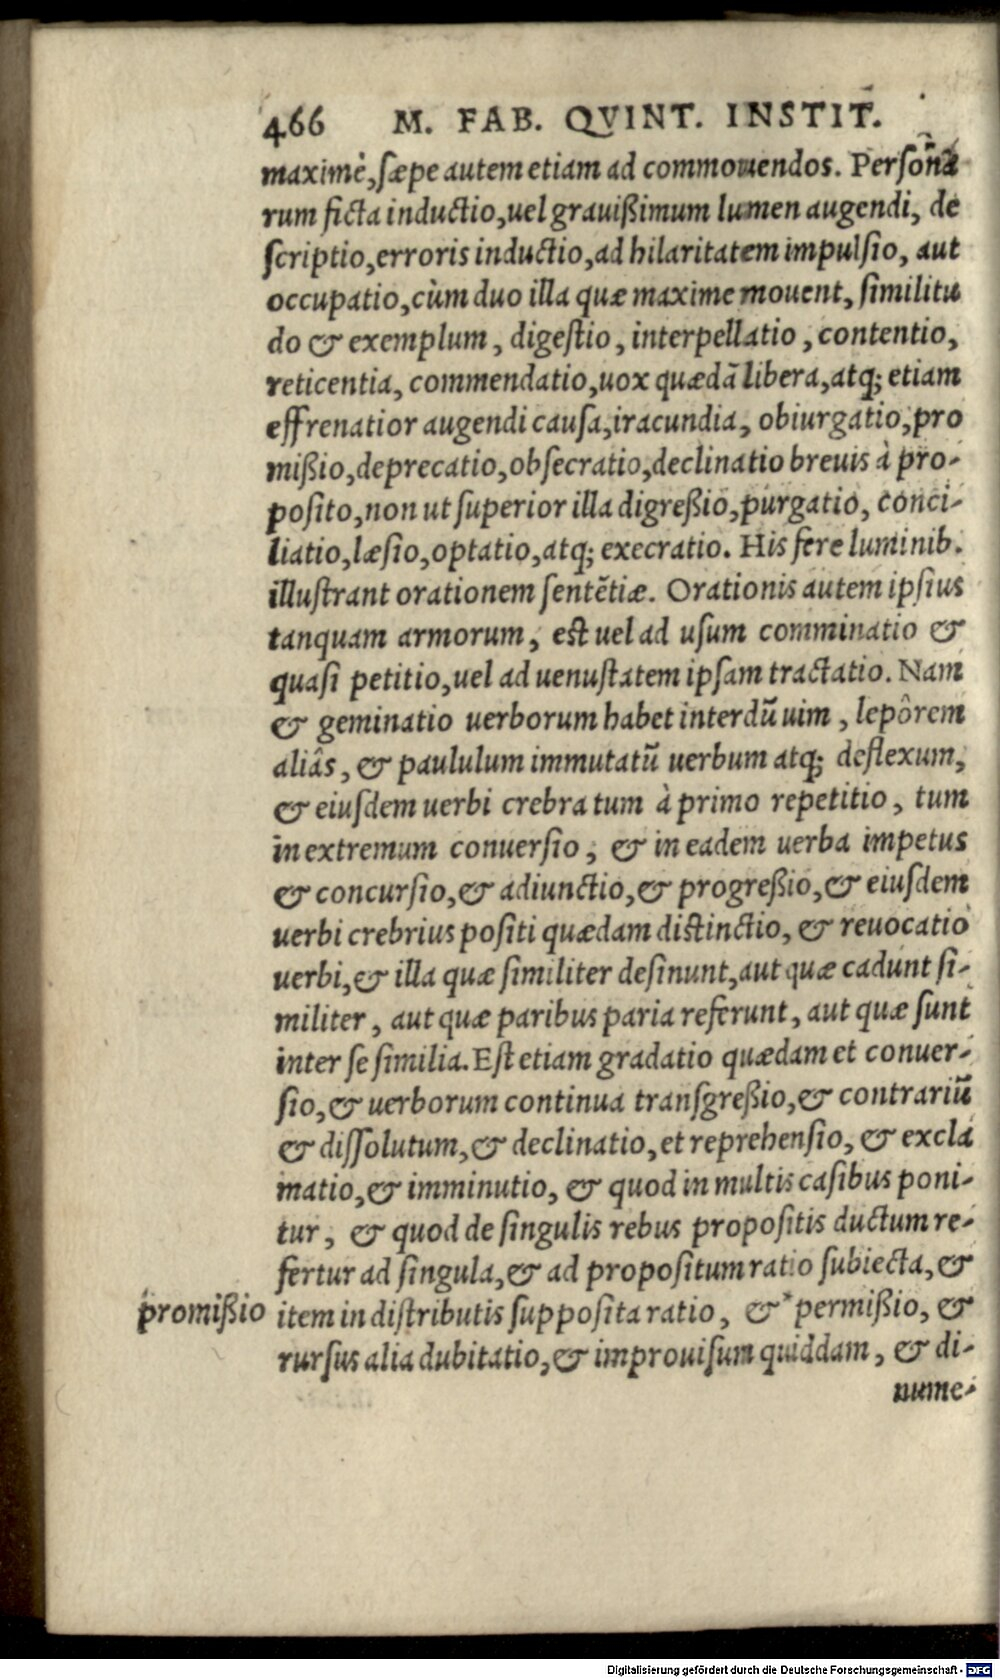 466 M. FAB. QVINT. INSTIT.
maximè, sæpe autem etiam ad commouendos. Personã
rum ficta inductio, uel grauißimum lumen augendi, de
scriptio, erroris inductio, ad hilaritatem impulsio, aut
occupatio, cùm duo illa quæ maxime mouent, similitu
do & exemplum, digestio, interpellatio, contentio,
reticentia, commendatio, uox quædã libera, atq; etiam
effrenatior augendi causa, iracundia, obiurgatio, pro
mißio, deprecatio, obsecratio, declinatio breuis à pro-
posito, non ut superior illa digreßio, purgatio, conci-
liatio, læsio, optatio, atq; execratio. His fere luminib.
illustrant orationem sentẽtiæ. Orationis autem ipsius
tanquam armorum, est uel ad usum comminatio &
quasi petitio, uel ad uenustatem ipsam tractatio. Nam
& geminatio uerborum habet interdũ uim, lepôrem
aliâs, & paululum immutatũ uerbum atq; deflexum,
& eiusdem uerbi crebra tum à primo repetitio, tum
in extremum conuersio, & in eadem uerba impetus
& concursio, & adiunctio, & progreßio, & eiusdem
uerbi crebrius positi quædam distinctio, & reuocatio
uerbi, & illa quæ similiter desinunt, aut quæ cadunt si-
militer, aut quæ paribus paria referunt, aut quæ sunt
inter se similia. Est etiam gradatio quædam et conuer-
sio, & uerborum continua transgreßio, & contrariũ
& dissolutum, & declinatio, et reprehensio, & excla
matio, & imminutio, & quod in multis casibus poni-
tur, & quod de singulis rebus propositis ductum re-
fertur ad singula, & ad propositum ratio subiecta, &
promißio item in distributis supposita ratio, & *permißio, &
rursus alia dubitatio, & improuisum quiddam, & di-
nume-
Digitalisierung gefördert durch die Deutsche Forschungsgemeinschaft - DFG